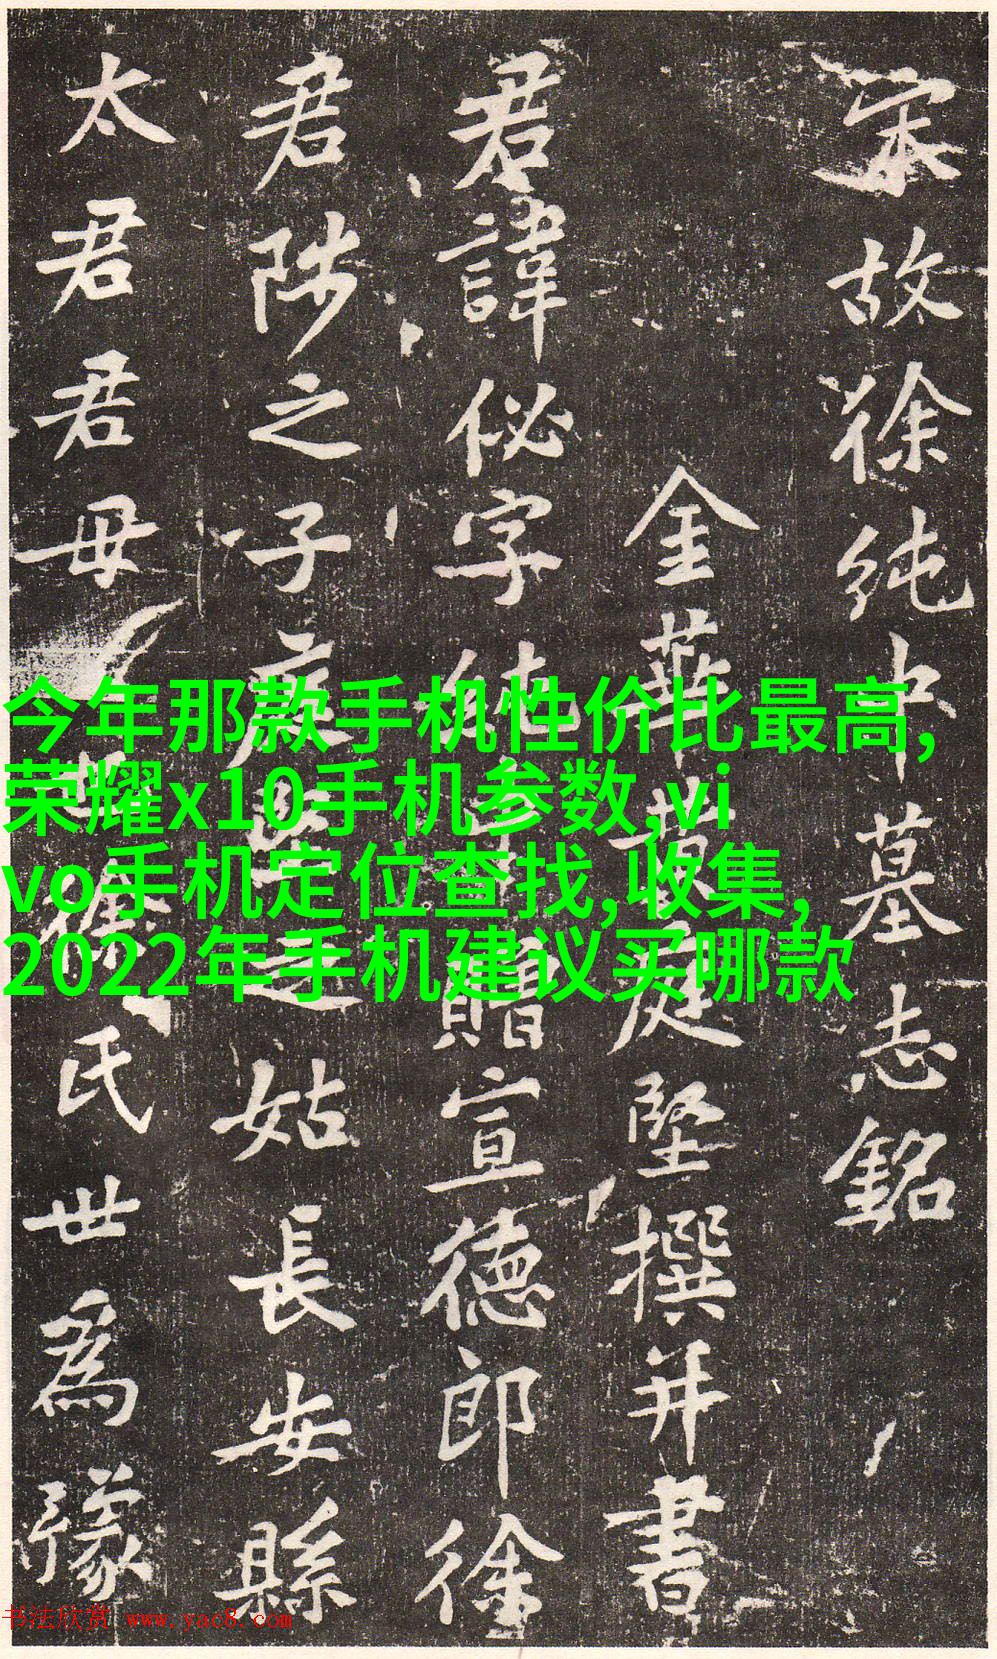 今年那款手机性价比最高,
荣耀x10手机参数,vi
vo手机定位查找,收集,
2022年手机建议买哪款
宋故徐純中墓志銘
金華黄庭堅撰并書
君諱佖字純中贈宣德郎徐
君陟之子庭堅之姑長安縣
太君君母徐氏世為豫
书法欣赏 www.yac8.com